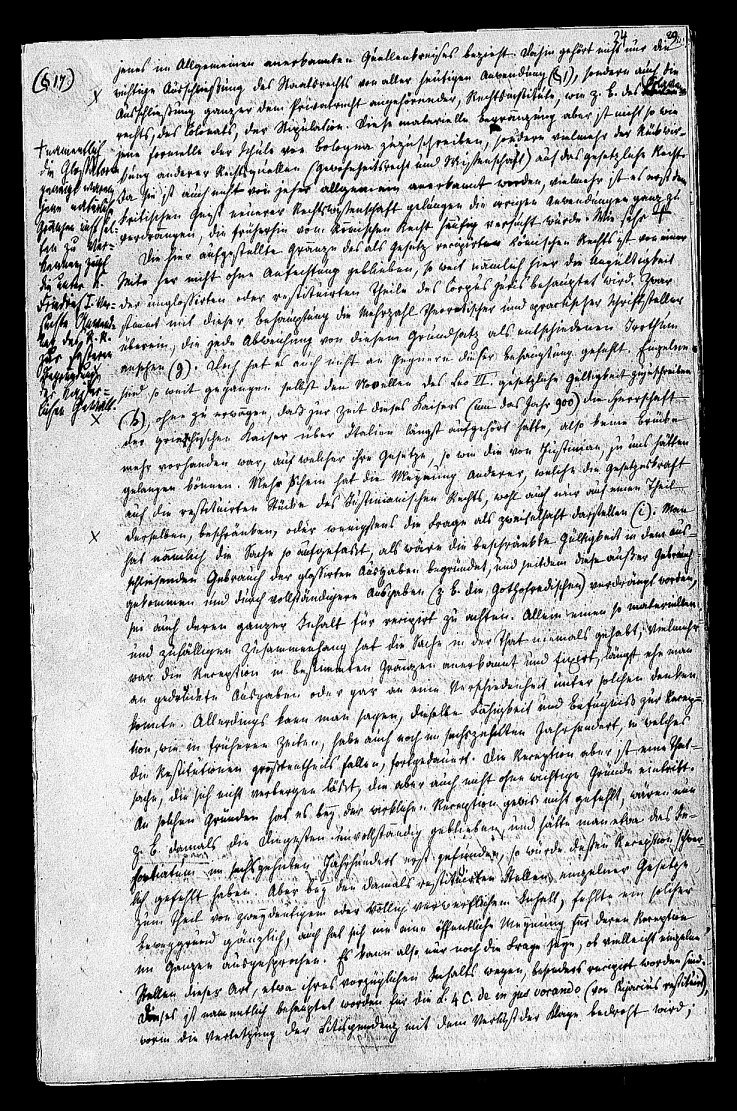 24
29
jenes im Allgemeinen anerkannten Quellenkreises bezieht. Dahin gehört nicht nur die
(§ 17)
wichtige Ausschließung des Staatsrechts von aller heutigen Anwendung (§ 1), sondern auch die
Ausschließung ganzer dem Privatrecht angehörender Rechtsinstitute, wie z. b. des
rechts, des Colonats, der Stipulation. Diese materielle Begränzung aber ist nicht so wie
jene formelle der Schule von Bologna zuzuschreiben, sondern vielmehr der Rückwir-
kung anderer Rechtsquellen (Gewohnheitsrecht und Wissenschaft) auf das gesetzliche Recht.
Ja sie ist auch nicht von jeher allgemein anerkannt worden, vielmehr ist es erst dem
kritischen Geist neuerer Rechtswissenschaft gelungen die irrigen Anwendungen ganz zu
verdrängen, die früherhin vom Römischen Recht häufig versucht wurden. Wie sehr +
+ namentlich
die Glossatoren
geneigt waren,
jene natürliche
Gränze
zu ver-
kennen, zeigt
die unter K.
Friedrich I. ver-
suchte Anwend.
des R. R.
zur
Begründung
der Kaiser-
lichen Gewalt.
Die hier aufgestellte Gränze des als Gesetz recipirten Römischen Rechts ist von einer
Seite her nicht ohne Anfechtung geblieben, so weit nämlich hier die Ungültigkeit
der unglossirten oder restituirten Theile des Corpus Juris behauptet wird. Zwar
stimmt mit dieser Behauptung die Mehrzahl theoretischer und practischer Schriftsteller
überein, die jede Abweichung von diesem Grundsatz als entschiedenen Irrthum
ansehen (g). Doch hat es auch nicht an Gegnern dieser Behauptung gefehlt. Einzelne
sind so weit gegangen selbst den Novellen des Leo VI. gesetzliche Gültigkeit zuzuschreiben
(h), ohne zu erwägen, daß zur Zeit dieses Kaisers (um das Jahr 900) die Herrschaft
der griechischen Kaiser über Italien längst aufgehört hatte, also keine Brücke
mehr vorhanden war, auf welcher ihre Gesetze, so wie die von Justinian, zu uns hätten
gelangen können. Mehr Schein hat die Meynung Anderer, welche die Gesetzeskraft
auf die restituirten Stücke des Justinianischen Rechts, wohl auch nur auf einen Theil
derselben, beschränken, oder wenigstens die Frage als zweifelhaft darstellen (i). Man
hat nämlich die Sache so aufgefasst, als wäre die beschränkte Gültigkeit in dem aus-
schließenden Gebrauch der glossirten Ausgaben begründet, und seitdem diese außer Gebrauch
gekommen und durch vollständigere Ausgaben (z. b. die Gothofredischen) verdrängt worden,
sei auch deren ganzer Inhalt für recipirt zu achten. Allein einen so materiellen
und zufälligen Zusammenhang hat die Sache in der That niemals gehabt; vielmehr
war die Reception in bestimmten Gränzen anerkannt und fixirt, längst ehe man
an gedruckte Ausgaben oder gar an eine Verschiedenheit unter solchen denken
konnte. Allerdings kann man sagen, dieselbe Fähigkeit und Befugniß zur Recep-
tion, wie in früheren Zeiten, habe auch noch im sechszehnten Jahrhundert, in welches
die Restitutionen großentheils fallen, fortgedauert. Die Reception aber ist eine That-
sache, die sich nicht verbergen läßt, die aber auch nicht ohne wichtige Gründe eintritt.
An solchen Gründen hat es bey der wirklichen Reception gewis nicht gefehlt, wären nun
z. b. damals die Digesten unvollständig geblieben, und hätte man etwa das In-
fortiatum im sechszehnten Jahrhundert erst gefunden, so würde dessen Reception schwer-
lich gefehlt haben. Aber bey den damals restituirten Stellen einzelner Gesetze
zum Theil von zweydeutigem oder völlig verwerflichem Inhalt, fehlte ein solcher
Beweggrund gänzlich, auch hat sich nie eine öffentliche Meynung für deren Reception
im Ganzen ausgesprochen. Es kann also nur noch die Frage seyn, ob vielleicht einzelne
Stellen dieser Art, etwa ihres vorzüglichen Inhalts wegen, besonders recipirt worden sind.
Dieses ist namentlich behauptet worden für die L. 4 C. de in jus vocando (von Cujacius restituirt),
worin die Verletzung der Litispendenz mit dem Verlust der Klage bedroht wird;